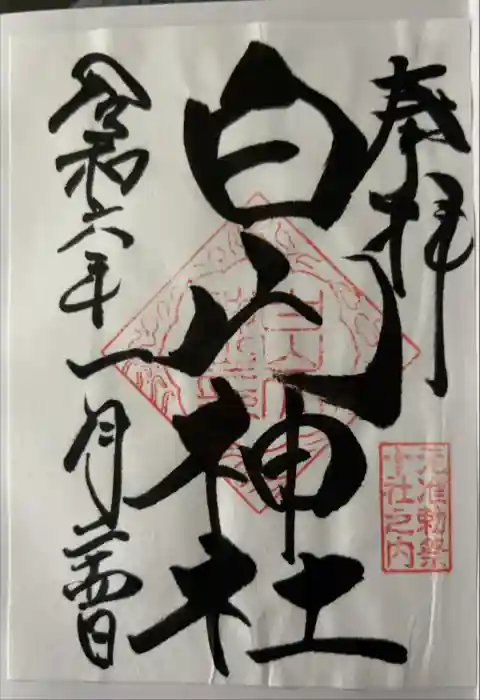 奉拝
元准勅祭
十社之内
白山神社
令和六年一月二十四日